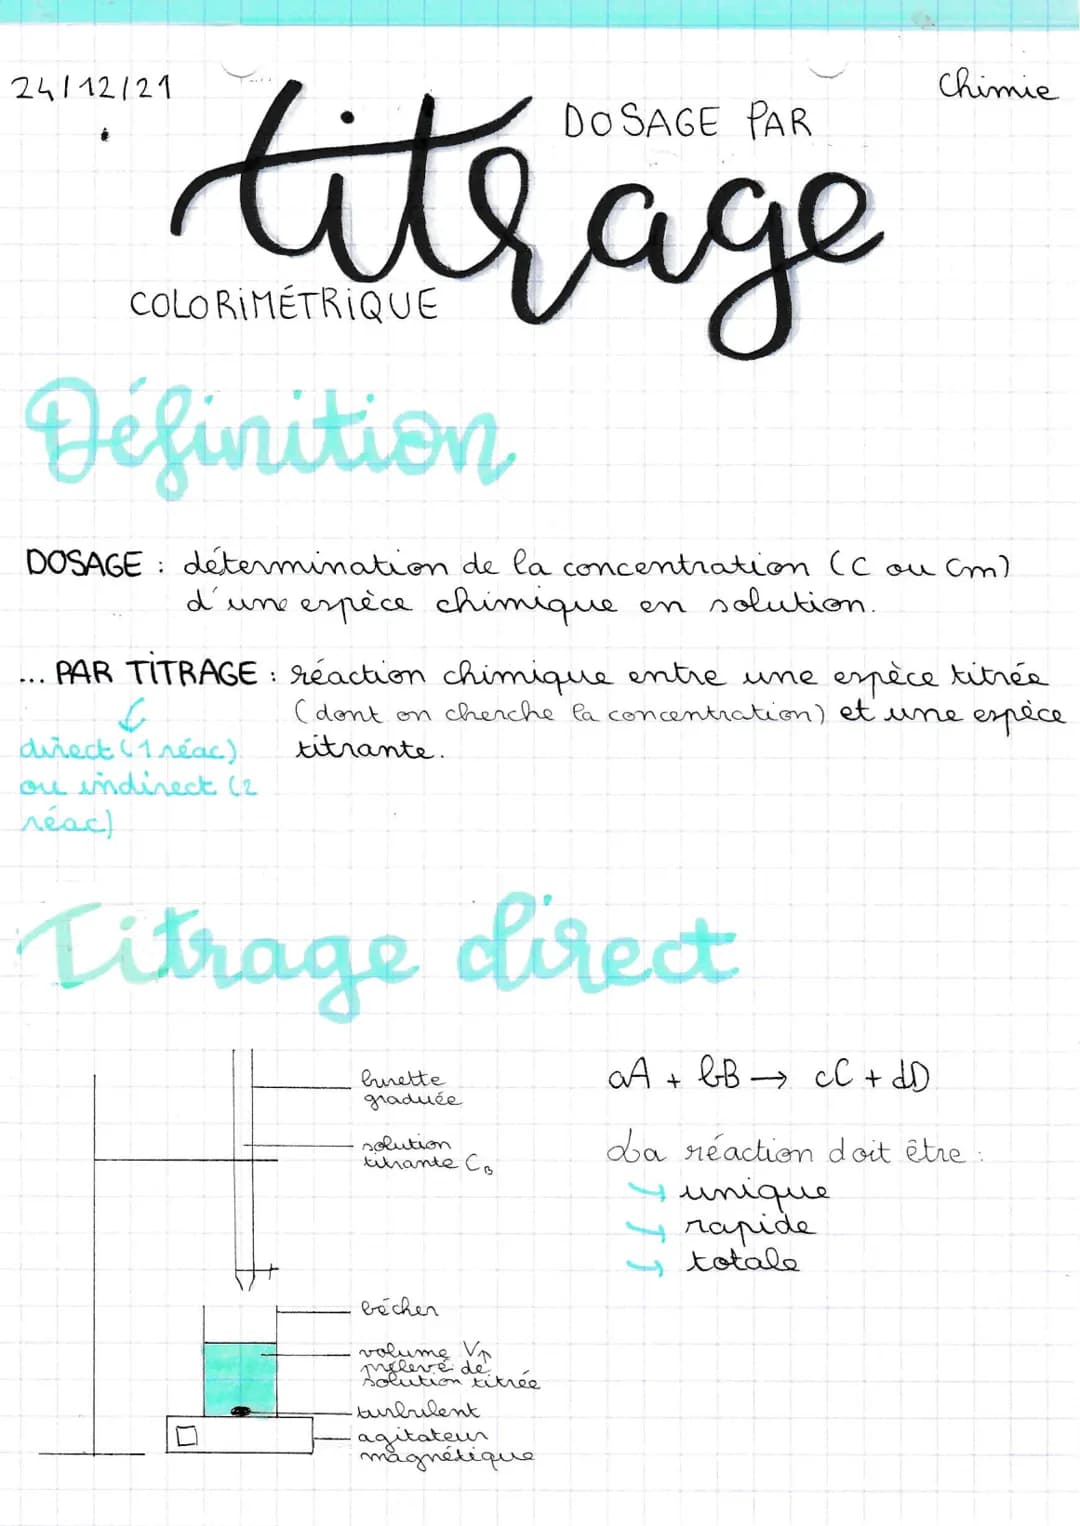 24/12/21
Chimie
DOSAGE PAR
titrage
COLORIMÉTRIQUE
Définition
DOSAGE : détermination de la concentration (C ou Cm)
d'une espèce chimique en solution.
... PAR TITRAGE : réaction chimique entre une espèce titrée
(dont on cherche la concentration) et une espèce
titrante.
direct (1 réac)
ou indirect (2
réac)
Titrage direct
burette
graduée
solution
titrante CB
bécher
volume Vp
prélevé de
solution titrée
turbulent
agitateur
magnétique
aA + bB → cC + dD
La réaction doit être :
↳ unique
↳ rapide
↳ totale